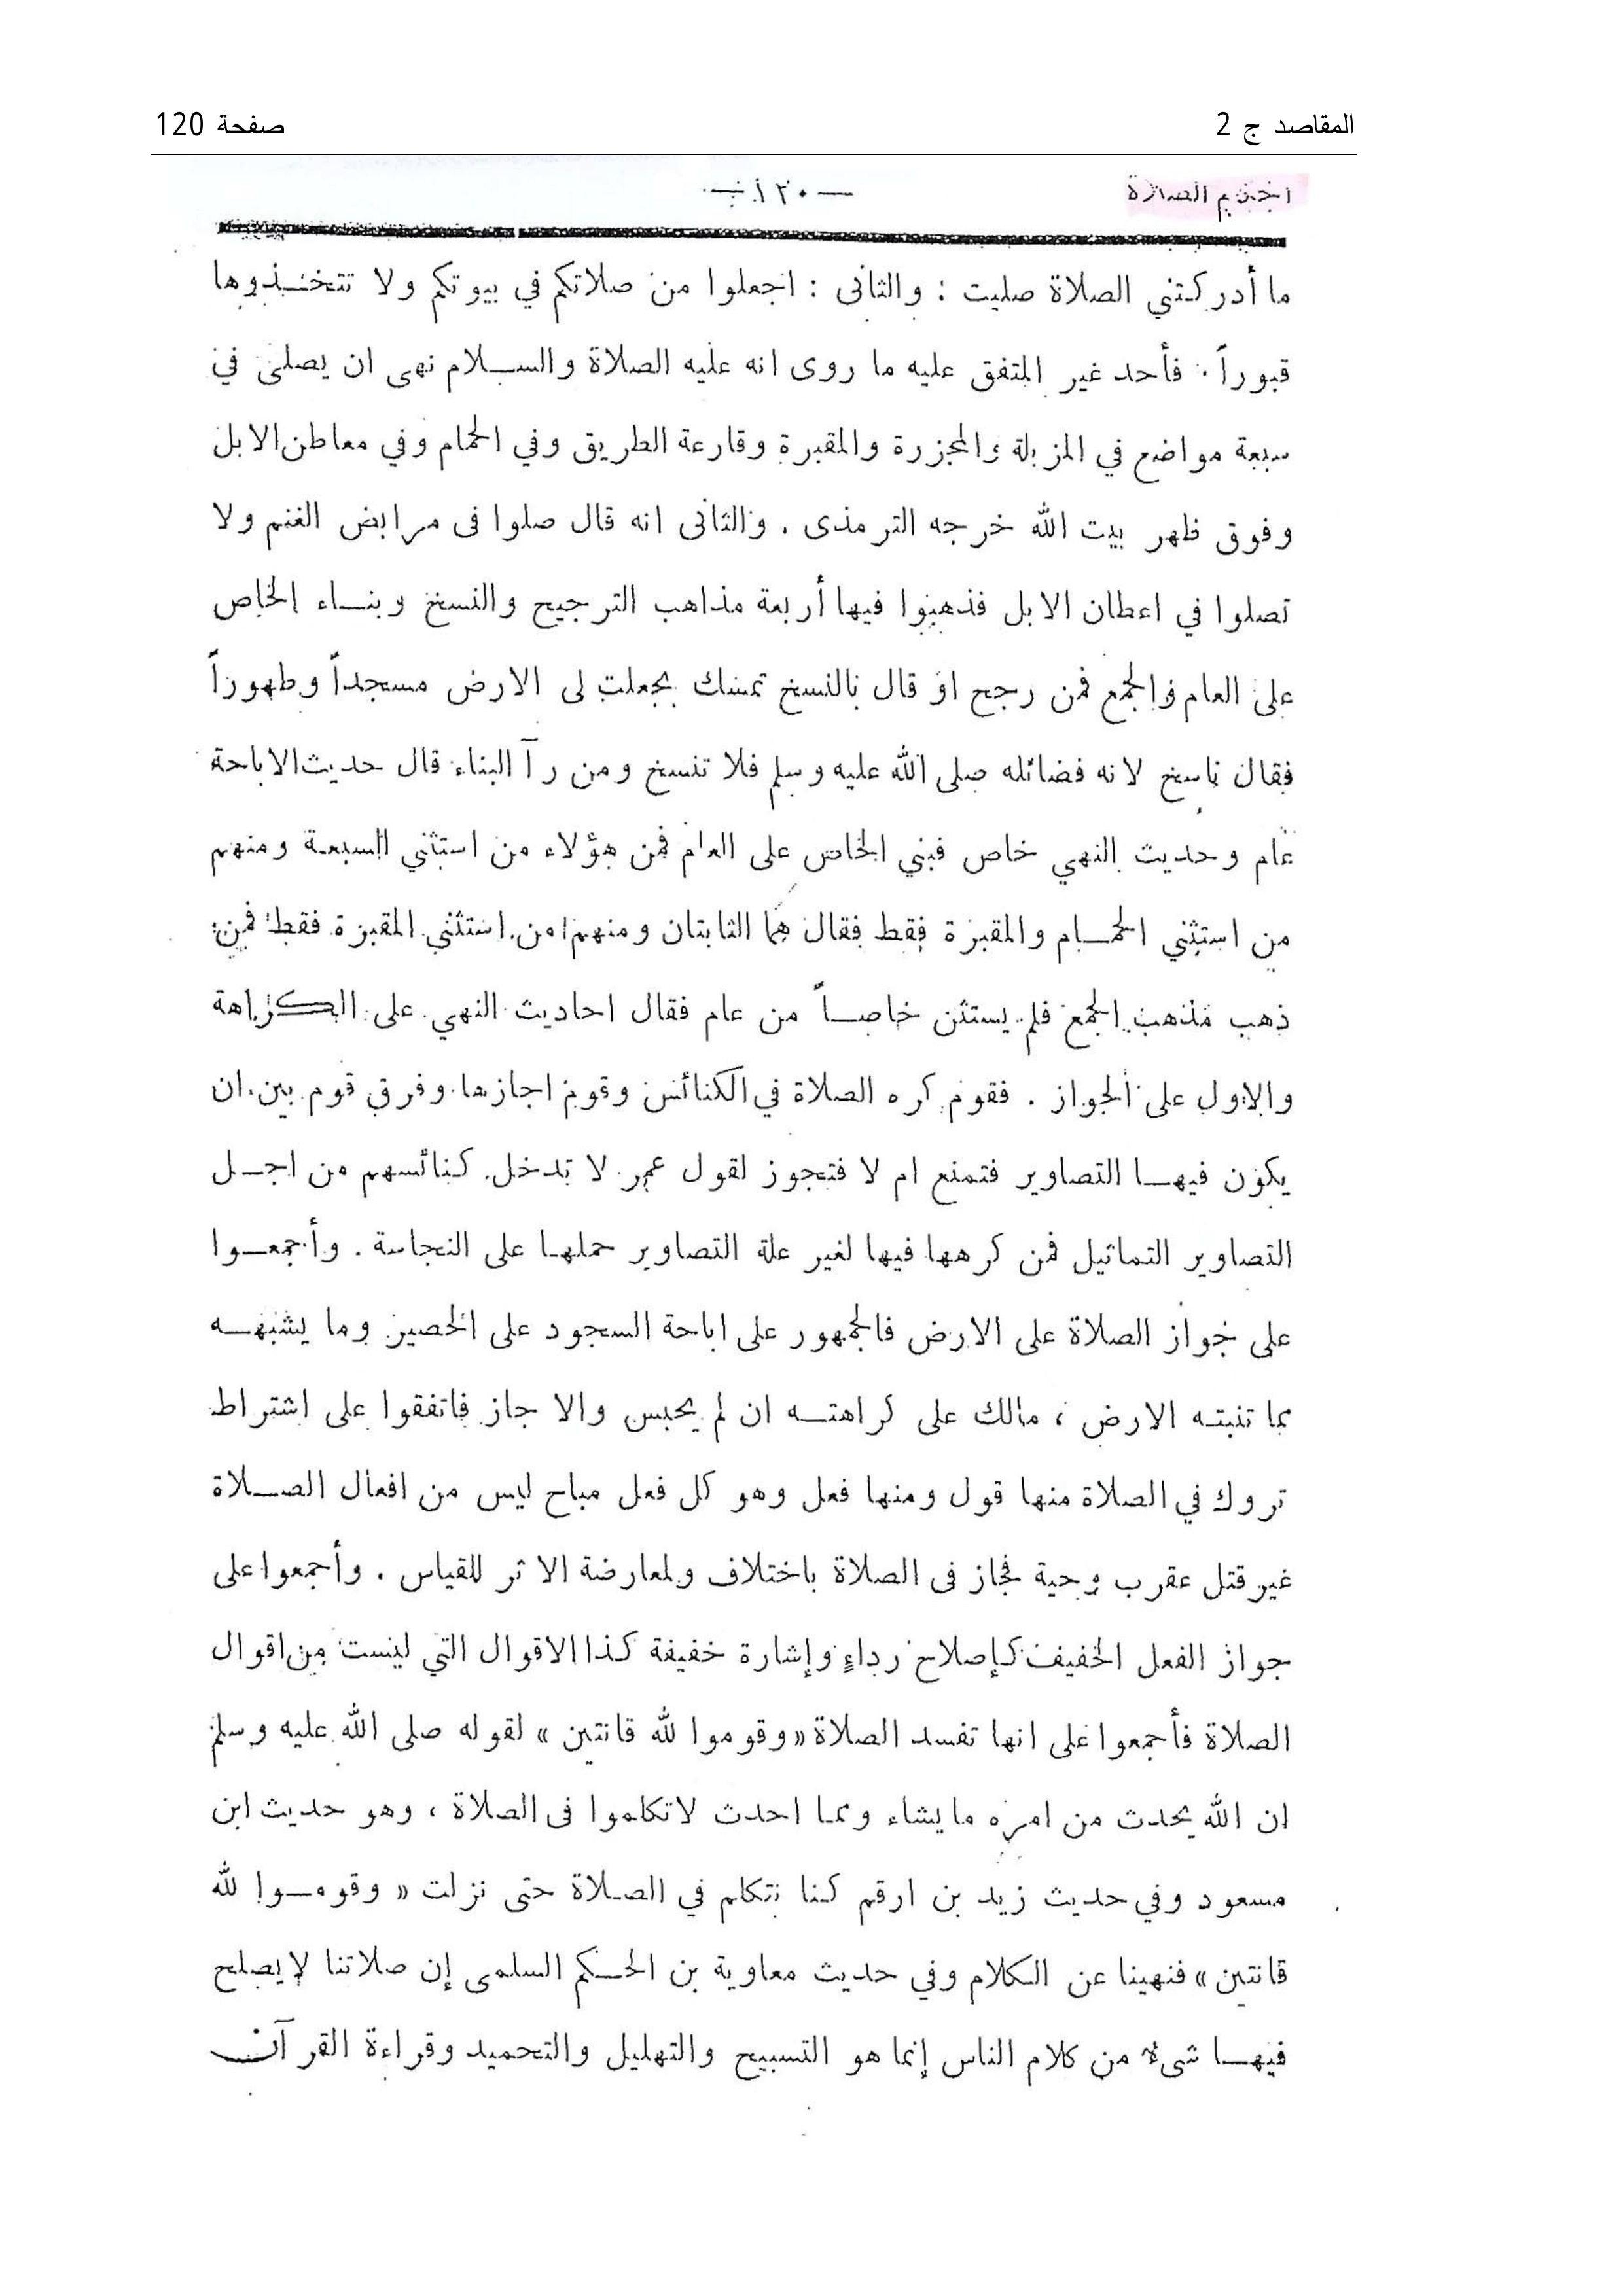 المقاصد ج 2
صفحة 120
الصلاة
— ١٢٠ —
ما أدركتني الصلاة صليت : والثانى : اجعلوا من صلاتكم في بيوتكم ولا تتخـذوها
قبوراً . فأحد غير المتفق عليه ما روى انه عليه الصلاة والسـلام نهى ان يصلى في
سبعة مواضع في المزبلة والمجزرة والمقبرة وقارعة الطريق وفي الحمام وفي معاطن الابل
وفوق ظهر بيت الله خرجه الترمذى . والثانى انه قال صلوا فى مرابض الغنم ولا
تصلوا في اعطان الابل فذهبوا فيها أربعة مذاهب الترجيح والنسخ وبنـاء الخاص
على العام والجمع فمن رجح او قال بالنسخ تمسك بجعلت لى الارض مسجداً وطهوراً
فقال ناسخ لانه فضائله صلى الله عليه وسلم فلا تنسخ ومن رآ البناء قال حديث الاباحة
عام وحديث النهي خاص فبني الخاص على العام فمن هؤلاء من استثني السبعة ومنهم
من استثني الحمـام والمقبرة فقط فقال هما الثابتان ومنهم من استثني المقبرة فقط فمن
ذهب مذهب الجمع فلم يستثن خاصـاً من عام فقال احاديث النهي على الكراهة
والاول على الجواز . فقوم كره الصلاة في الكنائس وقوم اجازها وفرق قوم بين ان
يكون فيهـا التصاوير فتمنع ام لا فتجوز لقول عمر لا تدخل كنائسهم من اجـل
التصاوير التماثيل فمن كرهها فيها لغير علة التصاوير حملهـا على النجاسة . وأجمعـوا
على جواز الصلاة على الارض فالجمهور على اباحة السجود على الحصير وما يشبهـه
مما تنبته الارض ، مالك على كراهتـه ان لم يحبس والا جاز فاتفقوا على اشتراط
تروك في الصلاة منها قول ومنها فعل وهو كل فعل مباح ليس من افعال الصـلاة
غير قتل عقرب وحية فجاز فى الصلاة باختلاف ولمعارضة الاثر للقياس . وأجمعوا على
جواز الفعل الخفيف كإصلاح رداءٍ وإشارة خفيفة كذا الاقوال التي ليست من اقوال
الصلاة فأجمعوا على انها تفسد الصلاة «وقوموا لله قانتين» لقوله صلى الله عليه وسلم
ان الله يحدث من امره ما يشاء ومما احدث لا تكلموا فى الصلاة ، وهو حديث ابن
مسعود وفي حديث زيد بن ارقم كنا نتكلم في الصـلاة حتى نزلت « وقومـوا لله
قانتين » فنهينا عن الكلام وفي حديث معاوية بن الحـكم السلمى إن صلاتنا لا يصلح
فيهـا شىء من كلام الناس إنما هو التسبيح والتهليل والتحميد وقراءة القرآن